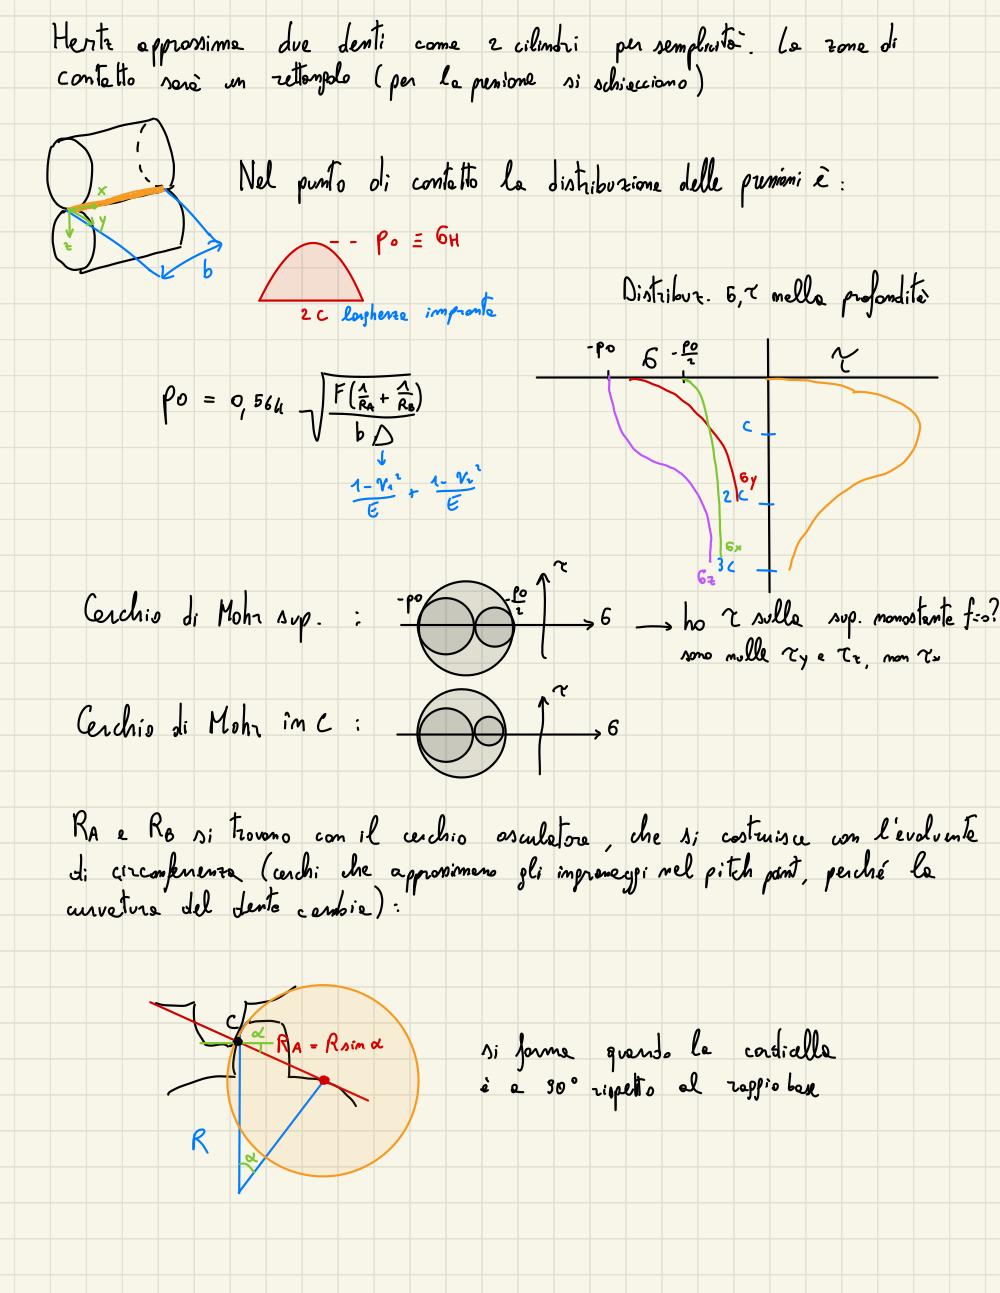 Hertz approssima due denti come 2 cilindri per semplicità. La zona di
contatto sarà un rettangolo (per la pressione si schiacciano)
x
y
z
b
Nel punto di contatto la distribuzione delle pressioni è:
p0 ≡ σH
2c larghezza impronta
Distribuz. σ,τ nella profondità
-p0 σ -p0/2 τ
c
σy
2c
σx
3c
σz
p0 = 0,564 √(F(1/RA + 1/RB) / b Δ)
↓
1-ν1²/E + 1-ν2²/E
Cerchio di Mohr sup. :
-p0 -p0/2 τ σ
→ ho τ sulla sup. nonostante f=0?
sono nulle τy e τz, non τx
Cerchio di Mohr in C :
τ σ
RA e RB si trovano con il cerchio osculatore, che si costruisce con l'evolvente
di circonferenza (cerchi che approssimano gli ingranaggi nel pitch point, perché la
curvatura del dente cambia):
C
α
RA = R sin α
R
α
si forma quando la cordicella
è a 90° rispetto al raggio base